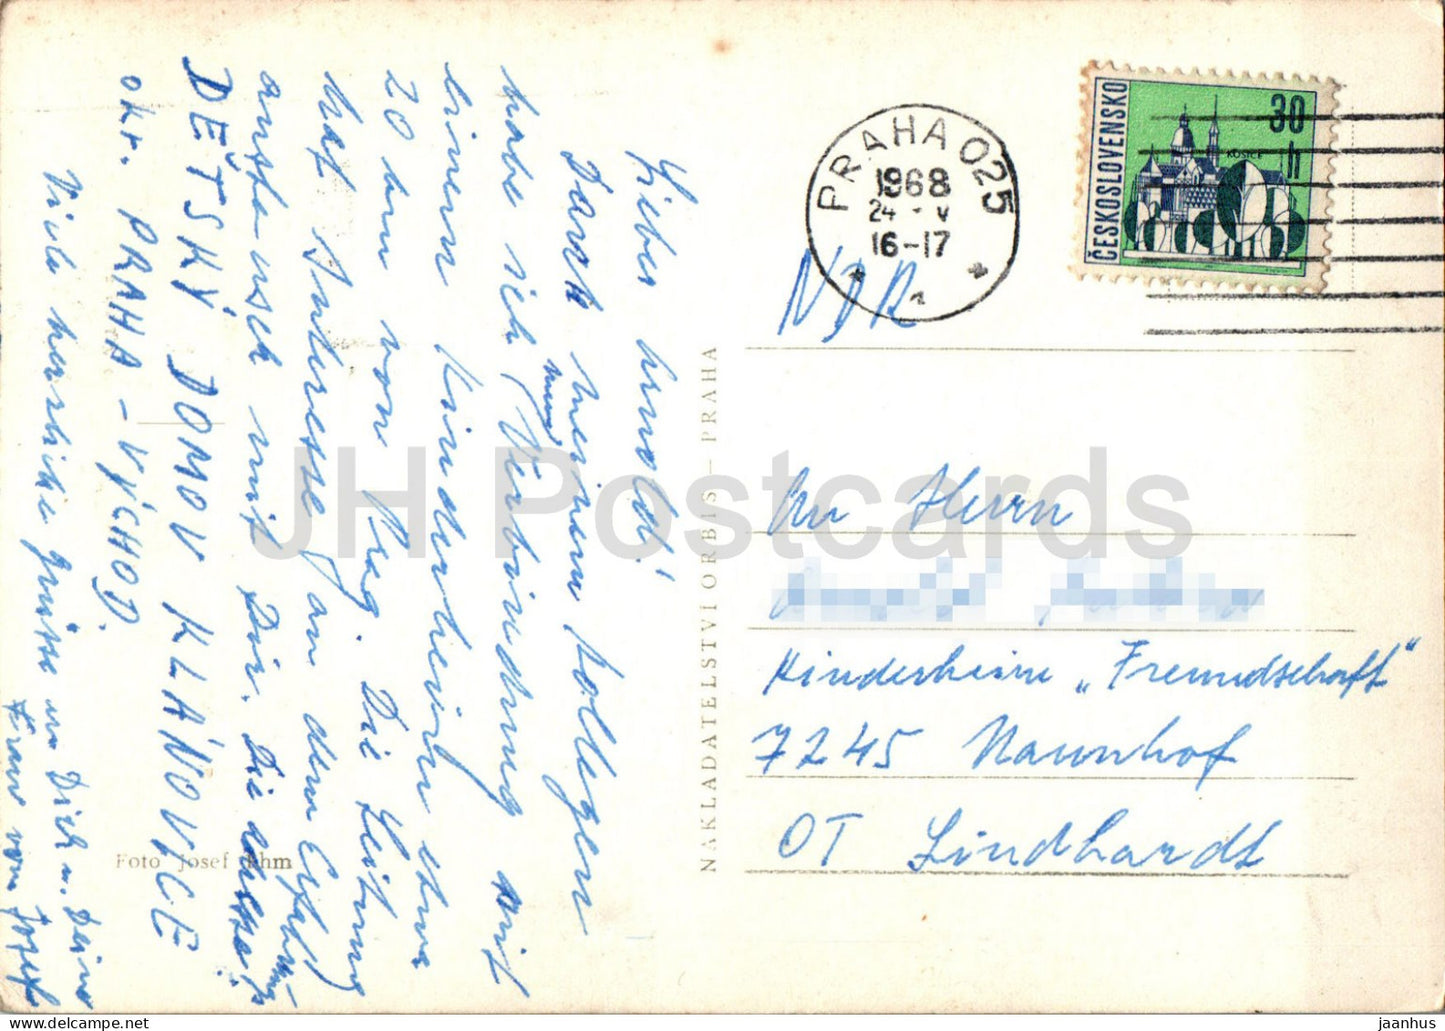 Lieber Arnold!
Durch meinen Kollegen
habe ich nun Verbindung mit
einem Kinderheim etwa
20 km von Prag. Die Leitung
hat Interesse an dem Erfahrungs-
austausch mit Dir. Die Adresse:
DĚTSKÝ DOMOV KLÁNOVICE
okr. PRAHA - VÝCHOD.
Viele herzliche Grüsse an Dich u. Deine
Frau von Josef
Foto Josef Ehm
NAKLADATELSTVÍ ORBIS — PRAHA
PRAHA 025
1968
24 · V
16-17
1
ČESKOSLOVENSKO
30 h
KOŠICE
NDR
An Herrn
Kinderheim „Freundschaft"
7245 Naunhof
OT Lindhardt
JH Postcards
jaanhus - delcampe.net